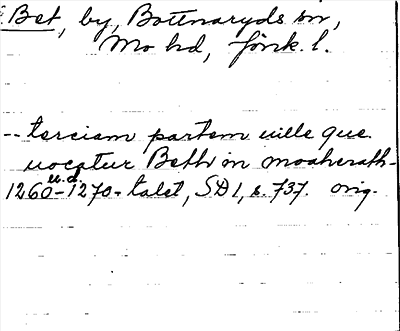 Bet, by, Bottnaryds sn,
Mo hd, Jönk. l.
-- terciam partem uille que
uocatur Beth in moaherath -
u.d.
1260-1270-talet, SD 1, s. 737. orig.